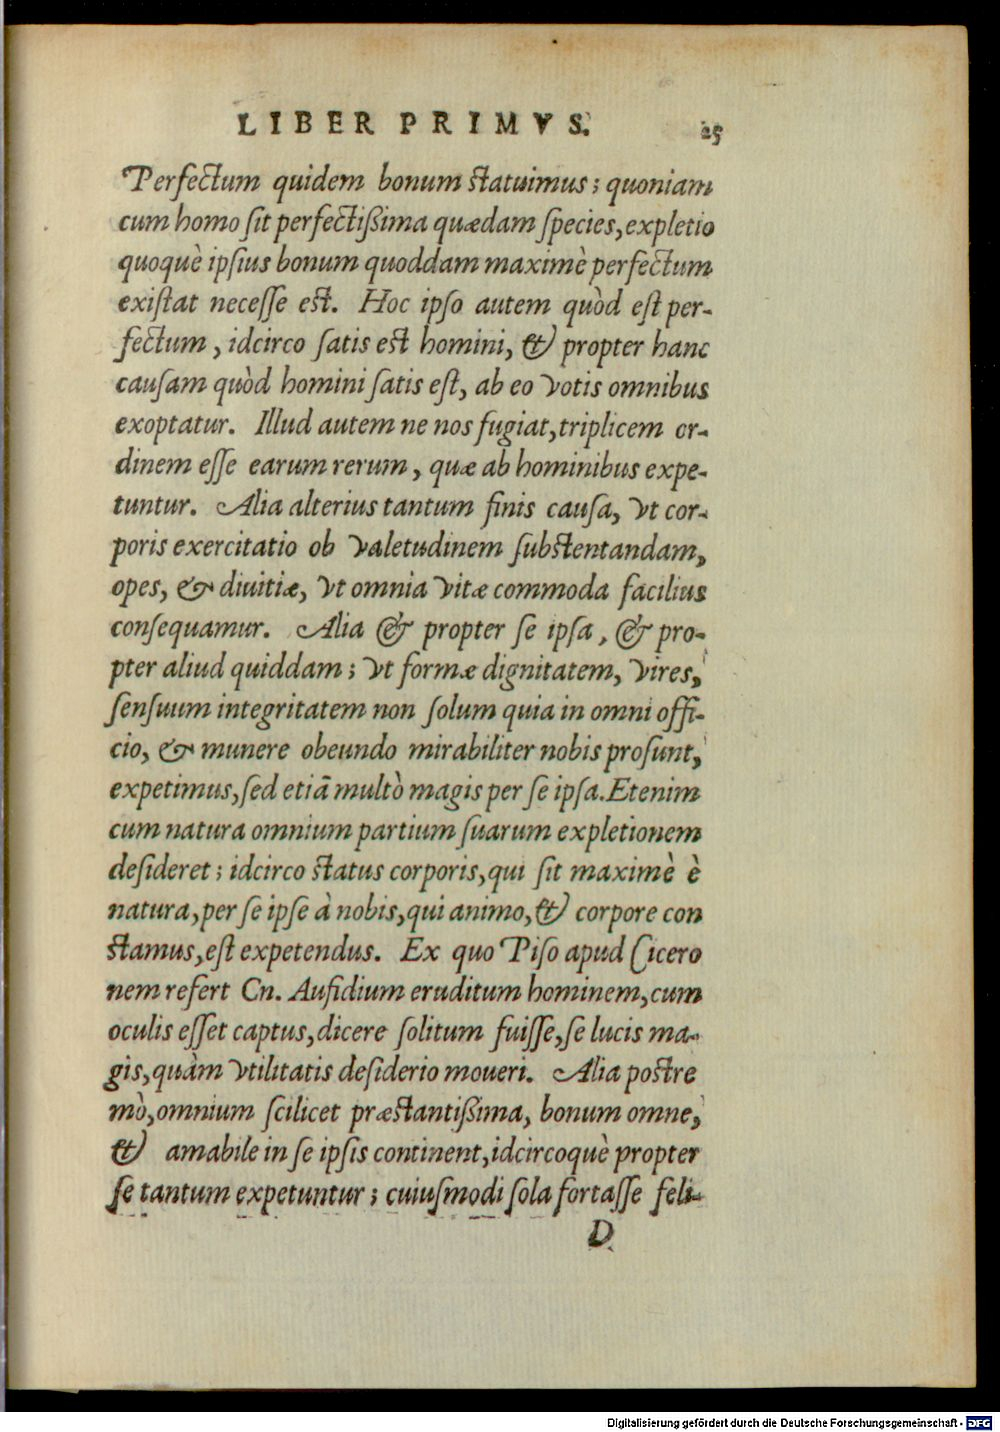 LIBER PRIMVS. 25
Perfectum quidem bonum statuimus; quoniam
cum homo sit perfectißima quædam species, expletio
quoquè ipsius bonum quoddam maximè perfectum
existat necesse est. Hoc ipso autem quòd est per-
fectum, idcirco satis est homini, & propter hanc
causam quòd homini satis est, ab eo votis omnibus
exoptatur. Illud autem ne nos fugiat, triplicem or-
dinem esse earum rerum, quæ ab hominibus expe-
tuntur. Alia alterius tantum finis causa, vt cor-
poris exercitatio ob valetudinem substentandam,
opes, & diuitiæ, vt omnia vitæ commoda facilius
consequamur. Alia & propter se ipsa, & pro-
pter aliud quiddam; vt formæ dignitatem, vires,
sensuum integritatem non solum quia in omni offi-
cio, & munere obeundo mirabiliter nobis prosunt,
expetimus, sed etiã multò magis per se ipsa. Etenim
cum natura omnium partium suarum expletionem
desideret; idcirco status corporis, qui sit maximè è
natura, per se ipse à nobis, qui animo, & corpore con
stamus, est expetendus. Ex quo Piso apud Cicero
nem refert Cn. Aufidium eruditum hominem, cum
oculis esset captus, dicere solitum fuisse, se lucis ma-
gis, quàm vtilitatis desiderio moueri. Alia postre
mò, omnium scilicet præstantißima, bonum omne,
& amabile in se ipsis continent, idcircoquè propter
se tantum expetuntur; cuiusmodi sola fortasse feli-
D
Digitalisierung gefördert durch die Deutsche Forschungsgemeinschaft - DFG